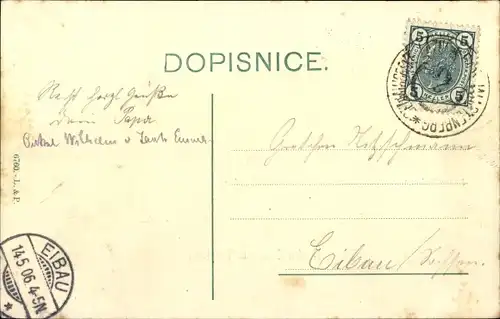 DOPISNICE.
5 5
5 HELLER 5
Recht herzl. Grüße
dein Papa
Onkel Wilhelm u Tante Emma
Gretchen
Eibau Sachsen.
6760.-L. & P.
EIBAU
14.5.06.4-5N.
*